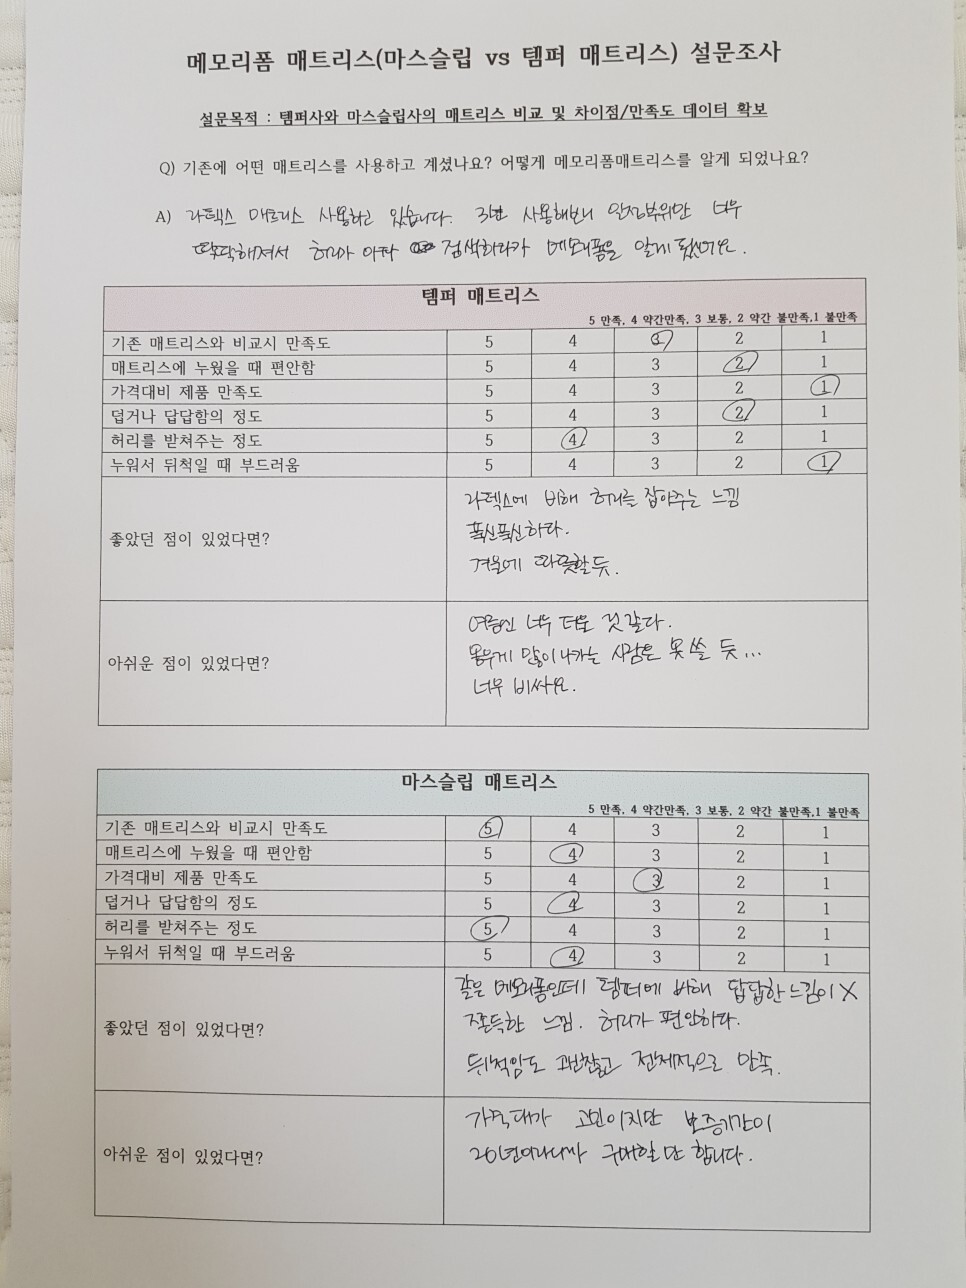 메모리폼 매트리스(마스슬립 vs 템퍼 매트리스) 설문조사
설문목적 : 템퍼사와 마스슬립사의 매트리스 비교 및 차이점/만족도 데이터 확보
Q) 기존에 어떤 매트리스를 사용하고 계셨나요? 어떻게 메모리폼매트리스를 알게 되었나요?
A) 라텍스 매트리스 사용하고 있습니다. 3년 사용해보니 일정부위만 너무
딱딱해져서 허리가 아파 검색하다가 메모리폼을 알게 됬어요.
템퍼 매트리스
5 만족, 4 약간만족, 3 보통, 2 약간 불만족,1 불만족
기존 매트리스와 비교시 만족도 5 4 3 2 1
매트리스에 누웠을 때 편안함 5 4 3 2 1
가격대비 제품 만족도 5 4 3 2 1
덥거나 답답함의 정도 5 4 3 2 1
허리를 받쳐주는 정도 5 4 3 2 1
누워서 뒤척일 때 부드러움 5 4 3 2 1
좋았던 점이 있었다면?
라텍스에 비해 허리를 잡아주는 느낌
푹신푹신하다.
겨울에 따뜻할듯.
아쉬운 점이 있었다면?
여름엔 너무 더울 것 같다.
몸무게 많이 나가는 사람은 못 쓸 듯...
너무 비싸요.
마스슬립 매트리스
5 만족, 4 약간만족, 3 보통, 2 약간 불만족,1 불만족
기존 매트리스와 비교시 만족도 5 4 3 2 1
매트리스에 누웠을 때 편안함 5 4 3 2 1
가격대비 제품 만족도 5 4 3 2 1
덥거나 답답함의 정도 5 4 3 2 1
허리를 받쳐주는 정도 5 4 3 2 1
누워서 뒤척일 때 부드러움 5 4 3 2 1
좋았던 점이 있었다면?
같은 메모리폼인데 템퍼에 비해 답답한 느낌이 X
쫀득한 느낌. 허리가 편안하다.
뒤척임도 괜찮고 전체적으로 만족.
아쉬운 점이 있었다면?
가격대가 고민이지만 보증기간이
20년이라니까 구매할만 합니다.